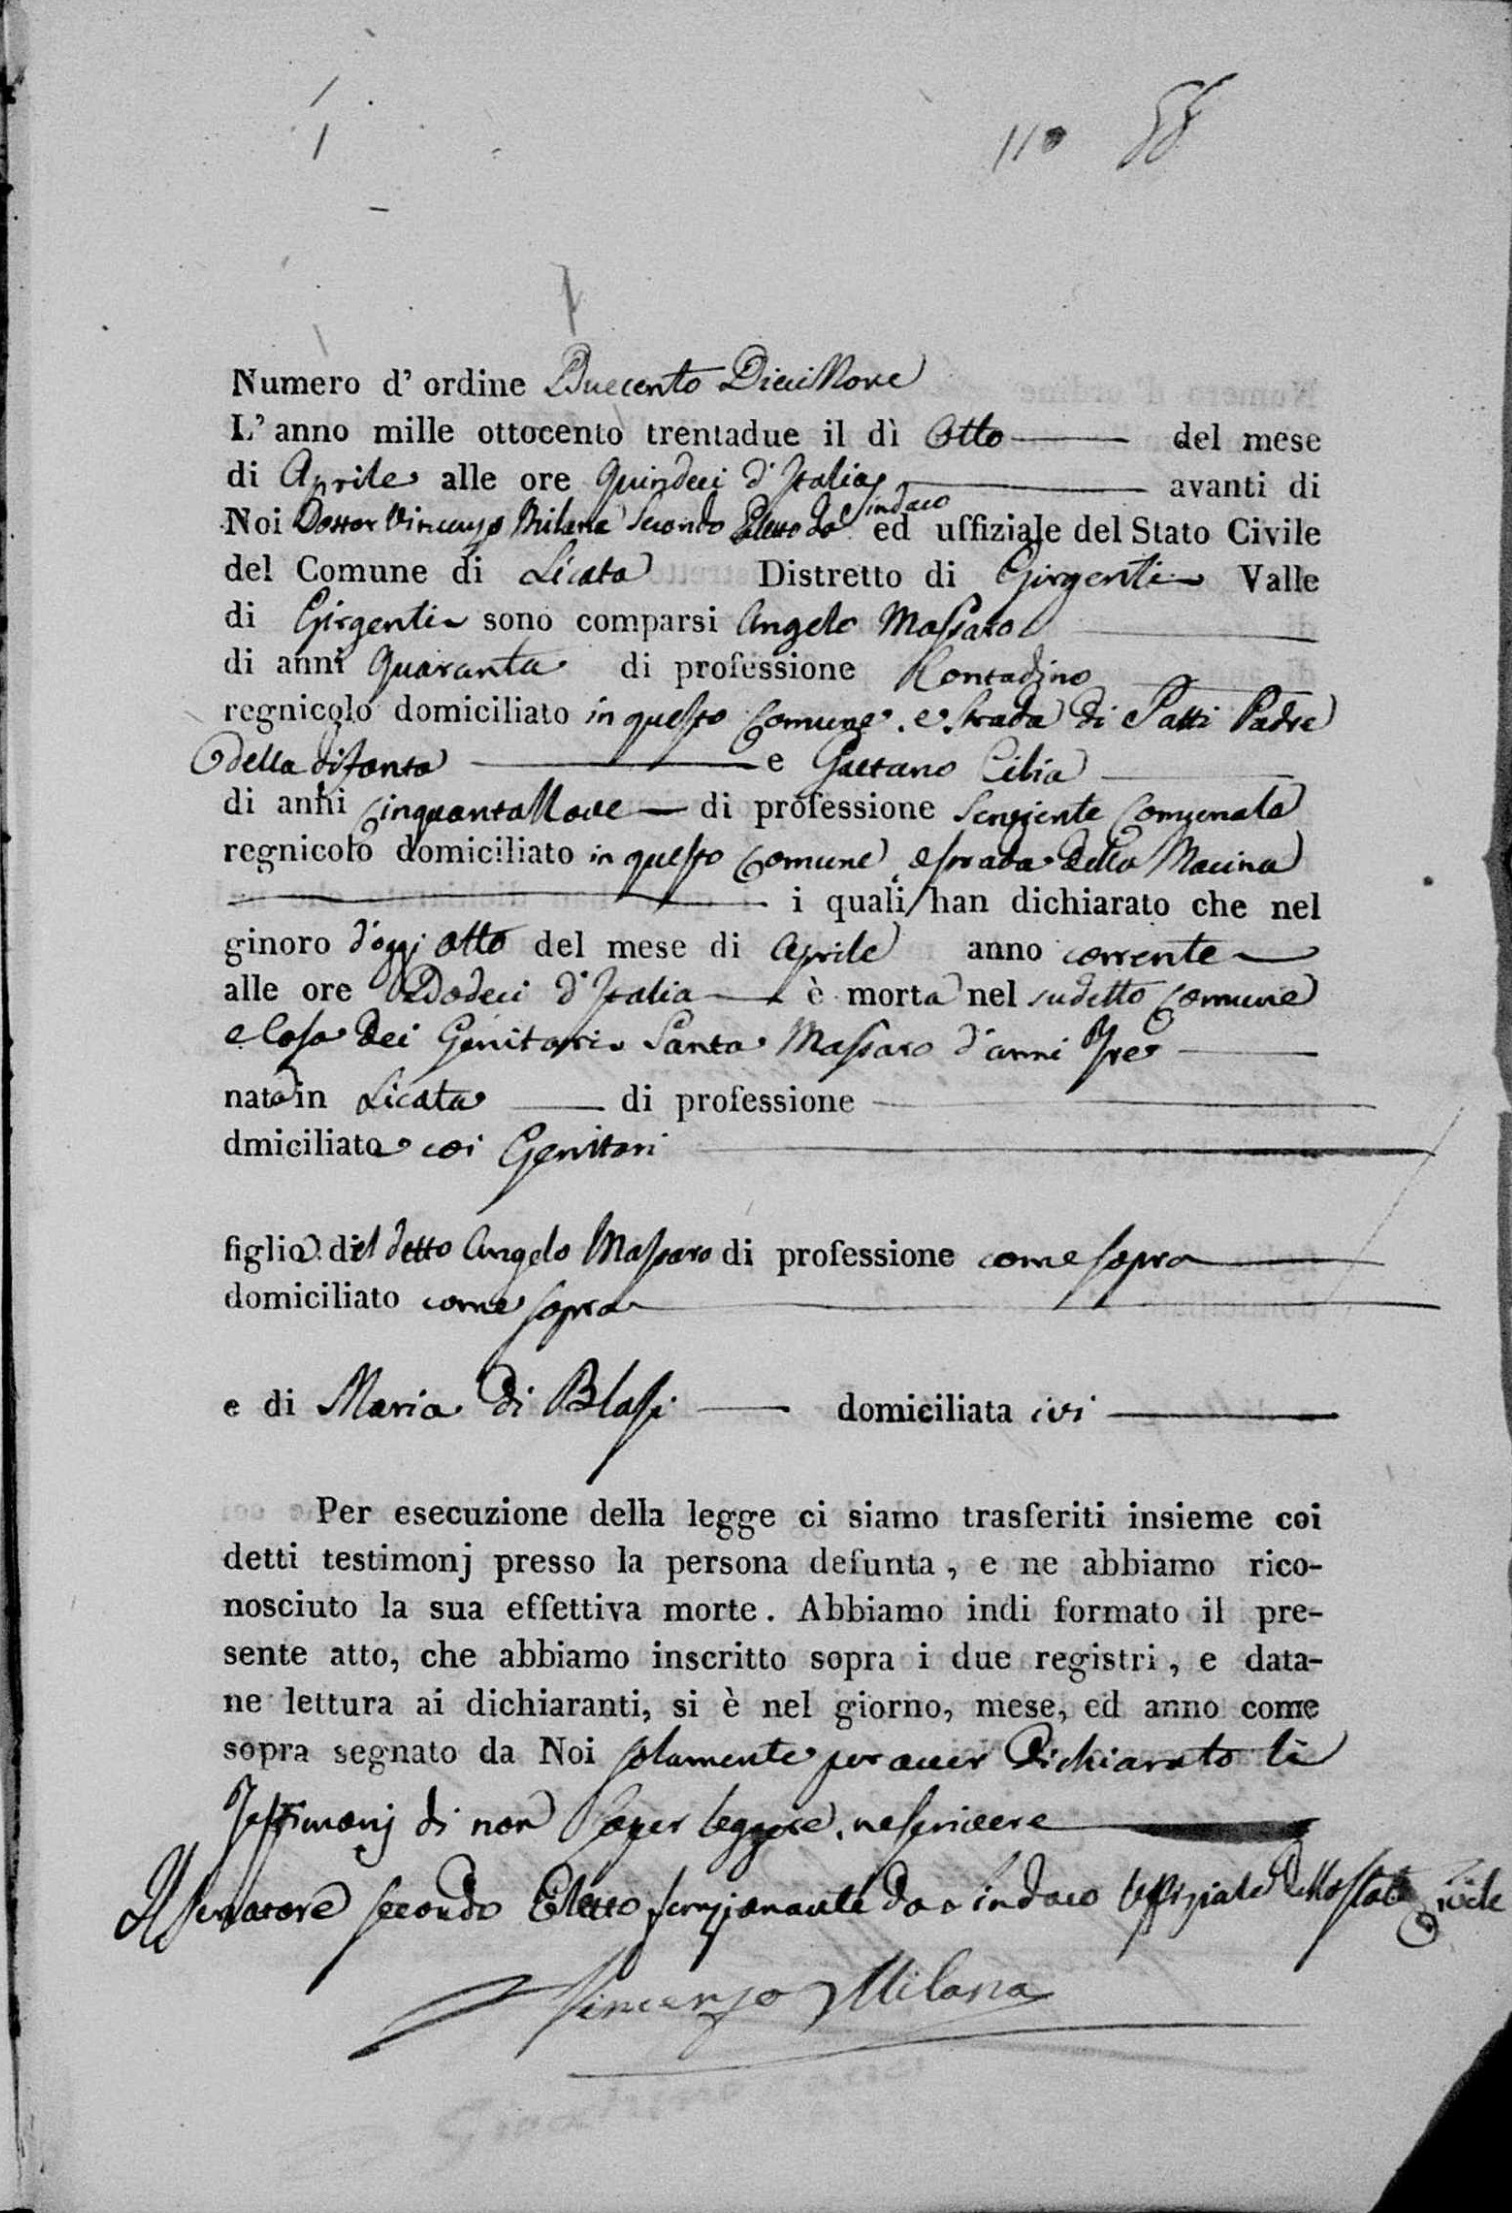 110 58
Numero d' ordine Duecento DieciNove
L' anno mille ottocento trentadue il dì Otto del mese
di Aprile alle ore Quindeci d'Italia avanti di
Noi Dottor Vincenzo Milana Secondo Eletto da Sindaco ed uffiziale del Stato Civile
del Comune di Licata Distretto di Girgenti Valle
di Girgenti sono comparsi Angelo Massaro
di anni Quaranta di professione Contadino
regnicolo domiciliato in questo Comune, e strada di Patti Padre
della difonta e Gaetano Cilia
di anni CinquantaNove di professione
regnicolo domiciliato in questo Comune, e strada della Macina
i quali han dichiarato che nel
ginoro d'oggi otto del mese di Aprile anno corrente
alle ore Dodeci d'Italia è morta nel sudetto Comune
e Casa dei Genitori Santa Massaro d'anni Tre
nata in Licata di professione
dmiciliata coi Genitori
figlia del detto Angelo Massaro di professione come sopra
domiciliato come sopra
e di Maria di Blasi domiciliata ivi
Per esecuzione della legge ci siamo trasferiti insieme coi
detti testimonj presso la persona defunta , e ne abbiamo rico-
nosciuto la sua effettiva morte . Abbiamo indi formato il pre-
sente atto, che abbiamo inscritto sopra i due registri , e data-
ne lettura ai dichiaranti, si è nel giorno, mese, ed anno come
sopra segnato da Noi solamente per aver dichiarato li
Testimonj di non saper leggere, ne scrivere
Il Senatore secondo Eletto funzionante da Sindaco Uffiziale dello Stato Civile
Vincenzo Milana